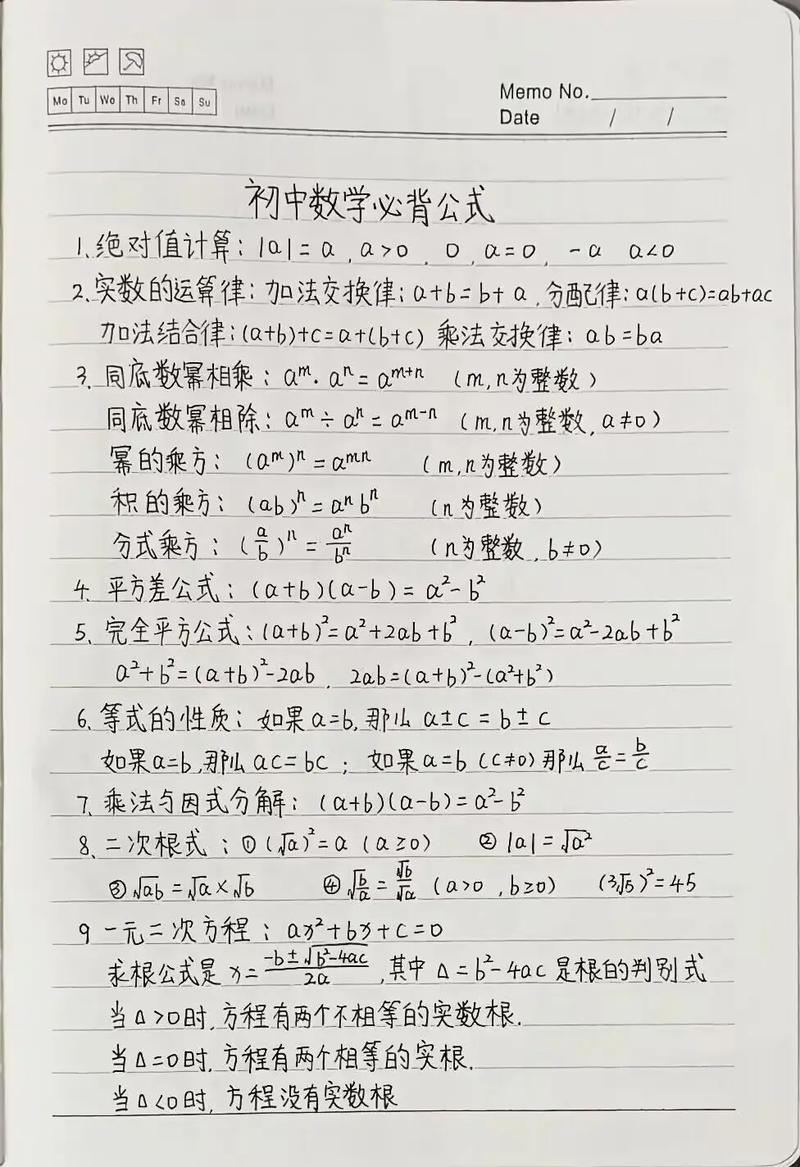 Mo Tu We Th Fr Sa Su
Memo No.
Date / /
初中数学必背公式
1、绝对值计算：|a|=a , a>0 , 0 , a=0 , -a a<0
2、实数的运算律：加法交换律：a+b=b+a , 分配律：a(b+c)=ab+ac
加法结合律：(a+b)+c=a+(b+c) 乘法交换律：ab=ba
3、同底数幂相乘：aᵐ·aⁿ=aᵐ⁺ⁿ (m,n为整数)
同底数幂相除：aᵐ÷aⁿ=aᵐ⁻ⁿ (m,n为整数,a≠0)
幂的乘方：(aᵐ)ⁿ=aᵐⁿ (m,n为整数)
积的乘方：(ab)ⁿ=aⁿbⁿ (n为整数)
分式乘方：(a/b)ⁿ=aⁿ/bⁿ (n为整数,b≠0)
4、平方差公式：(a+b)(a-b)=a²-b²
5、完全平方公式：(a+b)²=a²+2ab+b² , (a-b)²=a²-2ab+b²
a²+b²=(a+b)²-2ab , 2ab=(a+b)²-(a²+b²)
6、等式的性质：如果a=b,那么 a±c=b±c
如果a=b,那么ac=bc ；如果a=b (c≠0)那么a/c=b/c
7、乘法与因式分解：(a+b)(a-b)=a²-b²
8、二次根式：①(√a)²=a (a≥0) ②|a|=√a²
③√ab=√a×√b ④√b/a=√b/√a (a>0 ,b≥0) (3√5)²=45
9 一元二次方程：ax²+bx+c=0
求根公式是 x=-b±√b²-4ac/2a ,其中 Δ=b²-4ac 是根的判别式
当Δ>0时,方程有两个不相等的实数根.
当Δ=0时,方程有两个相等的实根.
当Δ<0时,方程没有实数根